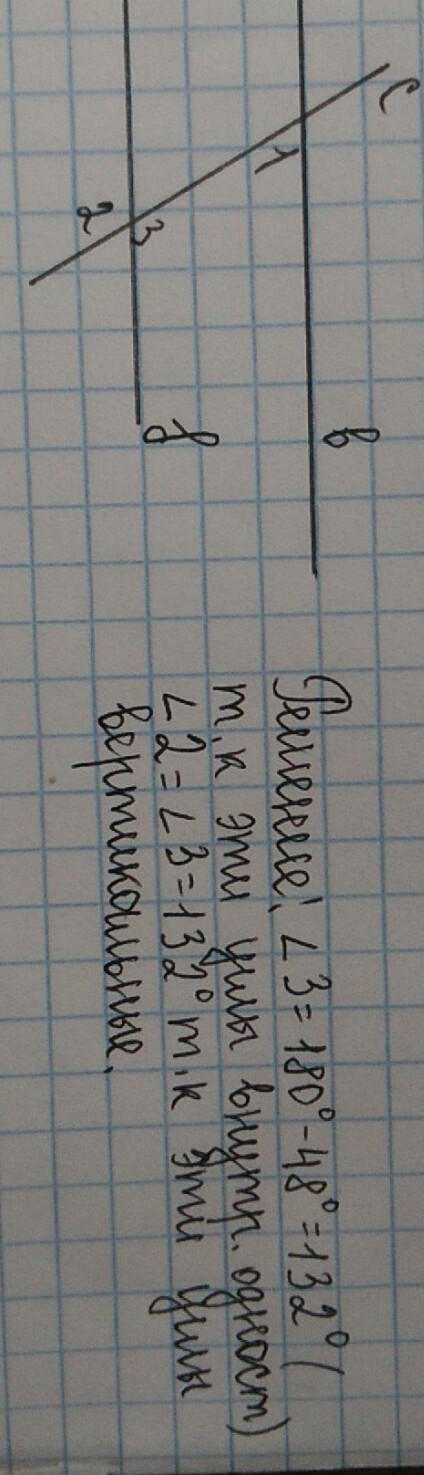 c
1
в
2
3
f
Решение: ∠3=180°-48°=132° (
т.к эти углы внутр. одност)
∠2=∠3=132° т.к эти углы
вертикальные.